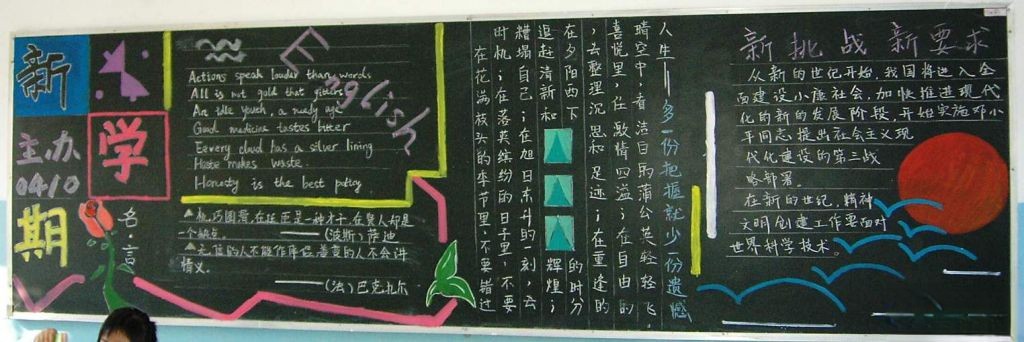 新
学
期
主办
0410
English
Actions speak louder than words
All is not gold that gitters
An idle youth, a needy age
Good medicine tastes bitter
Eevery cloud has a silver lining
Haste makes waste
Honesty is the best policy
名言
一个缺点。
——(波斯)萨迪
情义。
——(法)巴克扎尔
人生——多一份把握就少一份遗憾
晴空中,看洁白的蒲公英轻轻飞,
喜悦里,任激情四溢;在自由的
,去整理沉思和足迹;在重逢的
在夕阳西下的时分
追赶清新和辉煌;
糟塌自己;在旭日东升的一刻,去
时机;在落英缤纷的日子里,不要
在花满枝头的季节里,不要错过
新挑战新要求
从新的世纪开始,我国将进入全
面建设小康社会,加快推进现代
化的新的发展阶段,开始实施邓小
平同志提出社会主义现
代化建设的第三战
略部署。
在新的世纪,精神
文明创建工作要面对
世界科学技术。